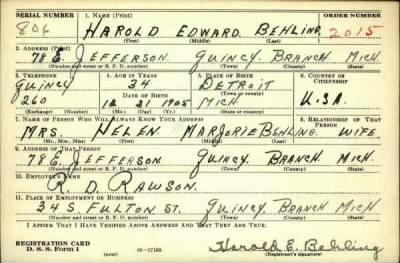 SERIAL NUMBER 1. NAME (Print) ORDER NUMBER
806 HAROLD EDWARD BEHLING 2015
(First) (Middle) (Last)
2. ADDRESS (Print)
78 E. JEFFERSON QUINCY, BRANCH MICH
(Number and street or R. F. D. number) (Town) (County) (State)
3. TELEPHONE 4. AGE IN YEARS 5. PLACE OF BIRTH 6. COUNTRY OF CITIZENSHIP
QUINCY 34 DETROIT
DATE OF BIRTH (Town or county)
260 12 21 1905 MICH U.S.A.
(Exchange) (Number) (Mo.) (Day) (Yr.) (State or country)
7. NAME OF PERSON WHO WILL ALWAYS KNOW YOUR ADDRESS 8. RELATIONSHIP OF THAT PERSON
MRS. HELEN MARJORIE BEHLING WIFE
(Mr., Mrs., Miss) (First) (Middle) (Last)
9. ADDRESS OF THAT PERSON
78 E. JEFFERSON QUINCY, BRANCH, MICH.
(Number and street or R. F. D. number) (Town) (County) (State)
10. EMPLOYER'S NAME
R. D. RAWSON.
11. PLACE OF EMPLOYMENT OR BUSINESS
34 S. FULTON ST. QUINCY BRANCH MICH
(Number and street or R. F. D. number) (Town) (County) (State)
I AFFIRM THAT I HAVE VERIFIED ABOVE ANSWERS AND THAT THEY ARE TRUE.
REGISTRATION CARD
D. S. S. Form 1 (over) 16—17105 Harold E. Behling
(Registrant's signature)